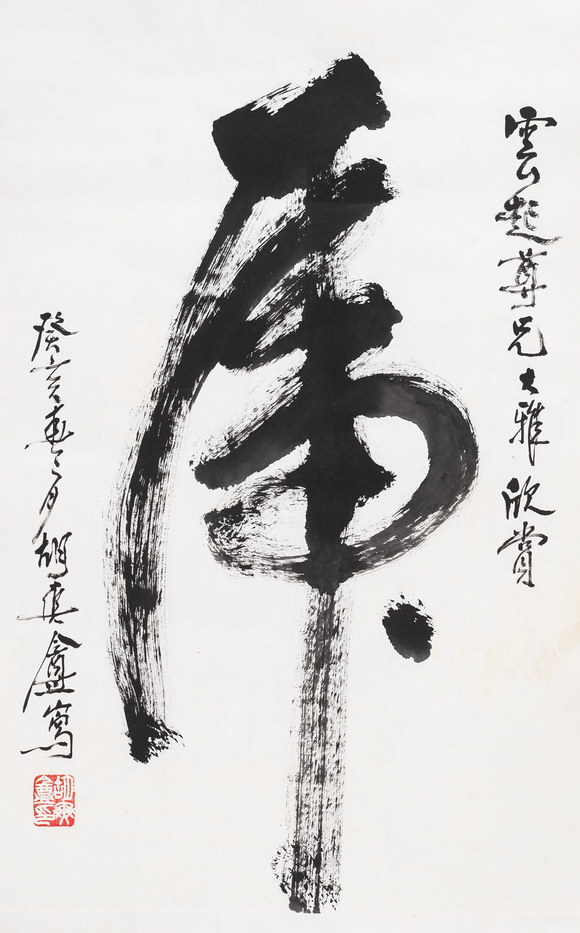 雲起尊兄大雅欣賞
虎
癸亥春二月胡爽盦寫
胡爽盦印